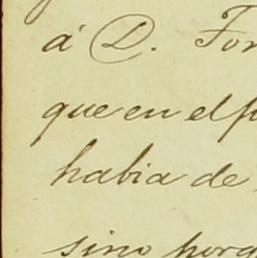 á D. For
que en el p
habia de
sino porq